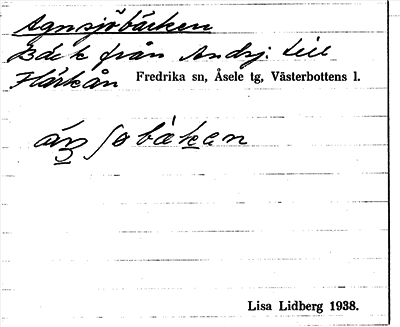 Agnsjöbäcken
Bäck från Andsj. till
Härkån Fredrika sn, Åsele tg, Västerbottens l.
Lisa Lidberg 1938.